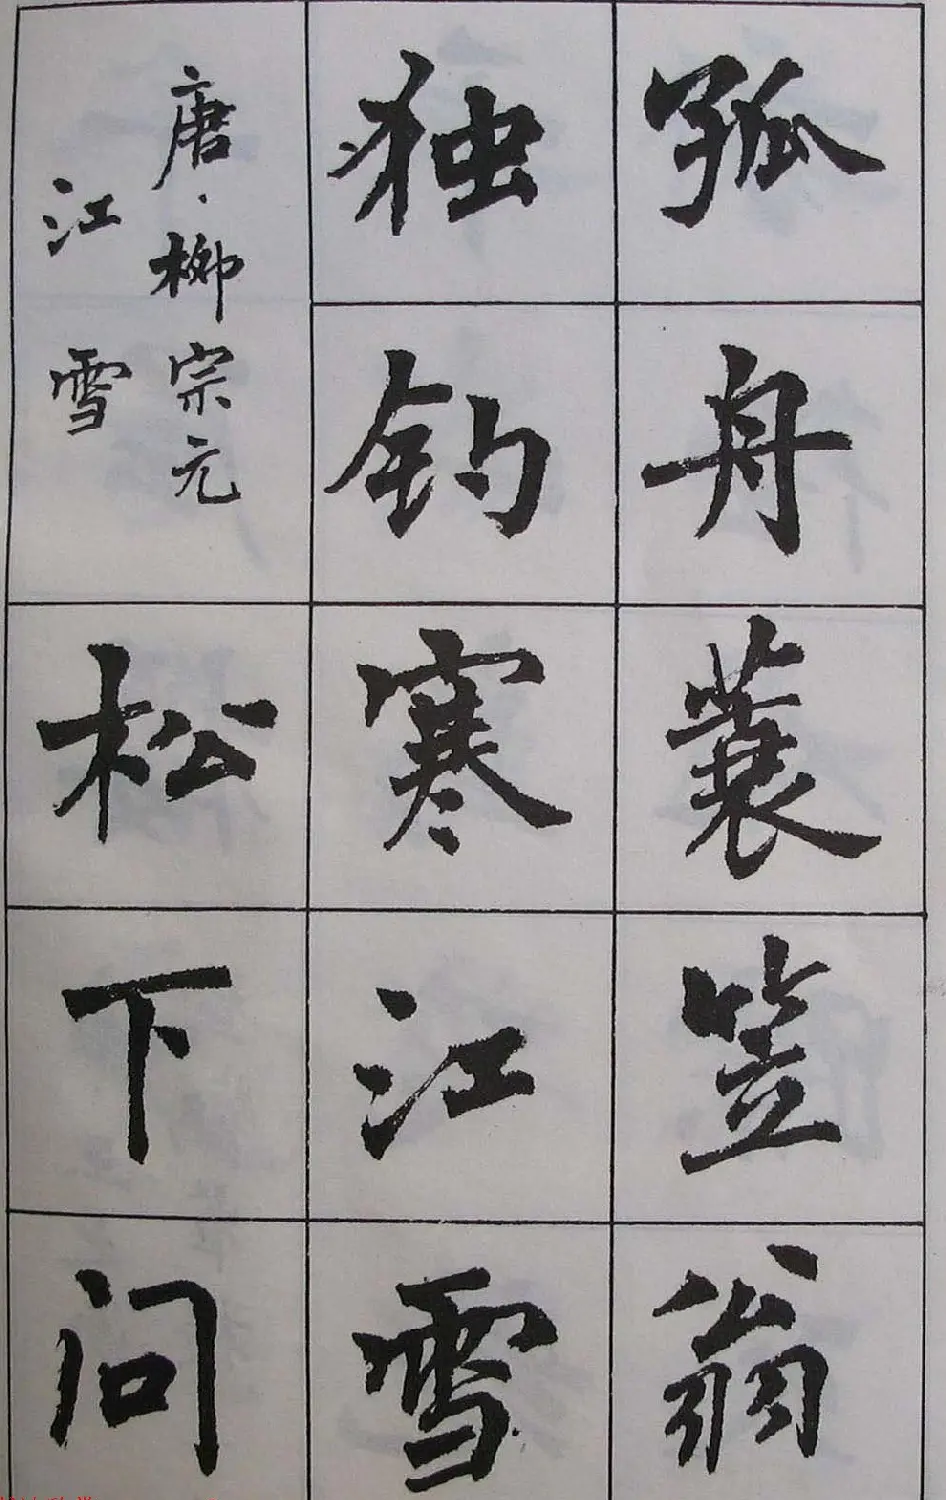 孤舟蓑笠翁
独钓寒江雪
唐·柳宗元
江雪
松下问